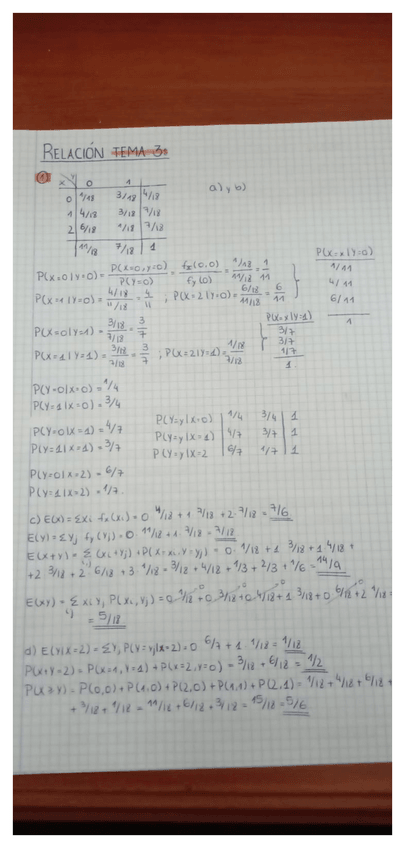 RELACIÓN TEMA 3:
1
X Y 0 1
0 1/18 3/18 4/18
1 4/18 3/18 7/18
2 6/18 1/18 7/18
11/18 7/18 1
a) y b)
P(X=0|Y=0) = P(X=0,Y=0)/P(Y=0) = fx(0,0)/fy(0) = 1/18/11/18 = 1/11
P(X=1|Y=0) = 4/18/11/18 = 4/11 ; P(X=2|Y=0) = 6/18/11/18 = 6/11
P(X=x|Y=0)
1/11
4/11
6/11
1
P(X=0|Y=1) = 3/18/7/18 = 3/7
P(X=1|Y=1) = 3/18/7/18 = 3/7 ; P(X=2|Y=1) = 1/18/7/18
P(X=x|Y=1)
3/7
3/7
1/7
1
P(Y=0|X=0) = 1/4
P(Y=1|X=0) = 3/4
P(Y=0|X=1) = 4/7
P(Y=1|X=1) = 3/7
P(Y=0|X=2) = 6/7
P(Y=1|X=2) = 1/7
P(Y=y|X=0) 1/4 3/4 1
P(Y=y|X=1) 4/7 3/7 1
P(Y=y|X=2 6/7 1/7 1
c) E(X) = Σxi fx(xi) = 0 4/18 + 1 7/18 + 2 · 7/18 = 7/6
E(Y) = Σyj fy(yj) = 0 · 11/18 + 1 · 7/18 = 7/18
E(X+Y) = Σ (xi+yj) · P(X=xi, Y=yj) = 0 · 1/18 + 1 3/18 + 1 4/18 +
+2 3/18 + 2 · 6/18 + 3 · 1/18 = 3/18 + 4/18 + 1/3 + 2/3 + 1/6 = 14/9
E(XY) = Σ xi yj P(xi, yj) = 0 1/18 + 0 3/18 + 0 4/18 + 1 3/18 + 0 6/18 + 2 1/18 =
= 5/18
d) E(Y|X=2) = ΣYj P(Y=yj|X=2) = 0 6/7 + 1 1/18 = 1/18
P(X+Y=2) = P(X=1,Y=1) + P(X=2,Y=0) = 3/18 + 6/18 = 1/2
P(X≥Y) = P(0,0) + P(1,0) + P(2,0) + P(1,1) + P(2,1) = 1/18 + 4/18 + 6/18 +
+ 3/18 + 1/18 = 11/18 + 6/18 + 3/18 = 15/18 = 5/6